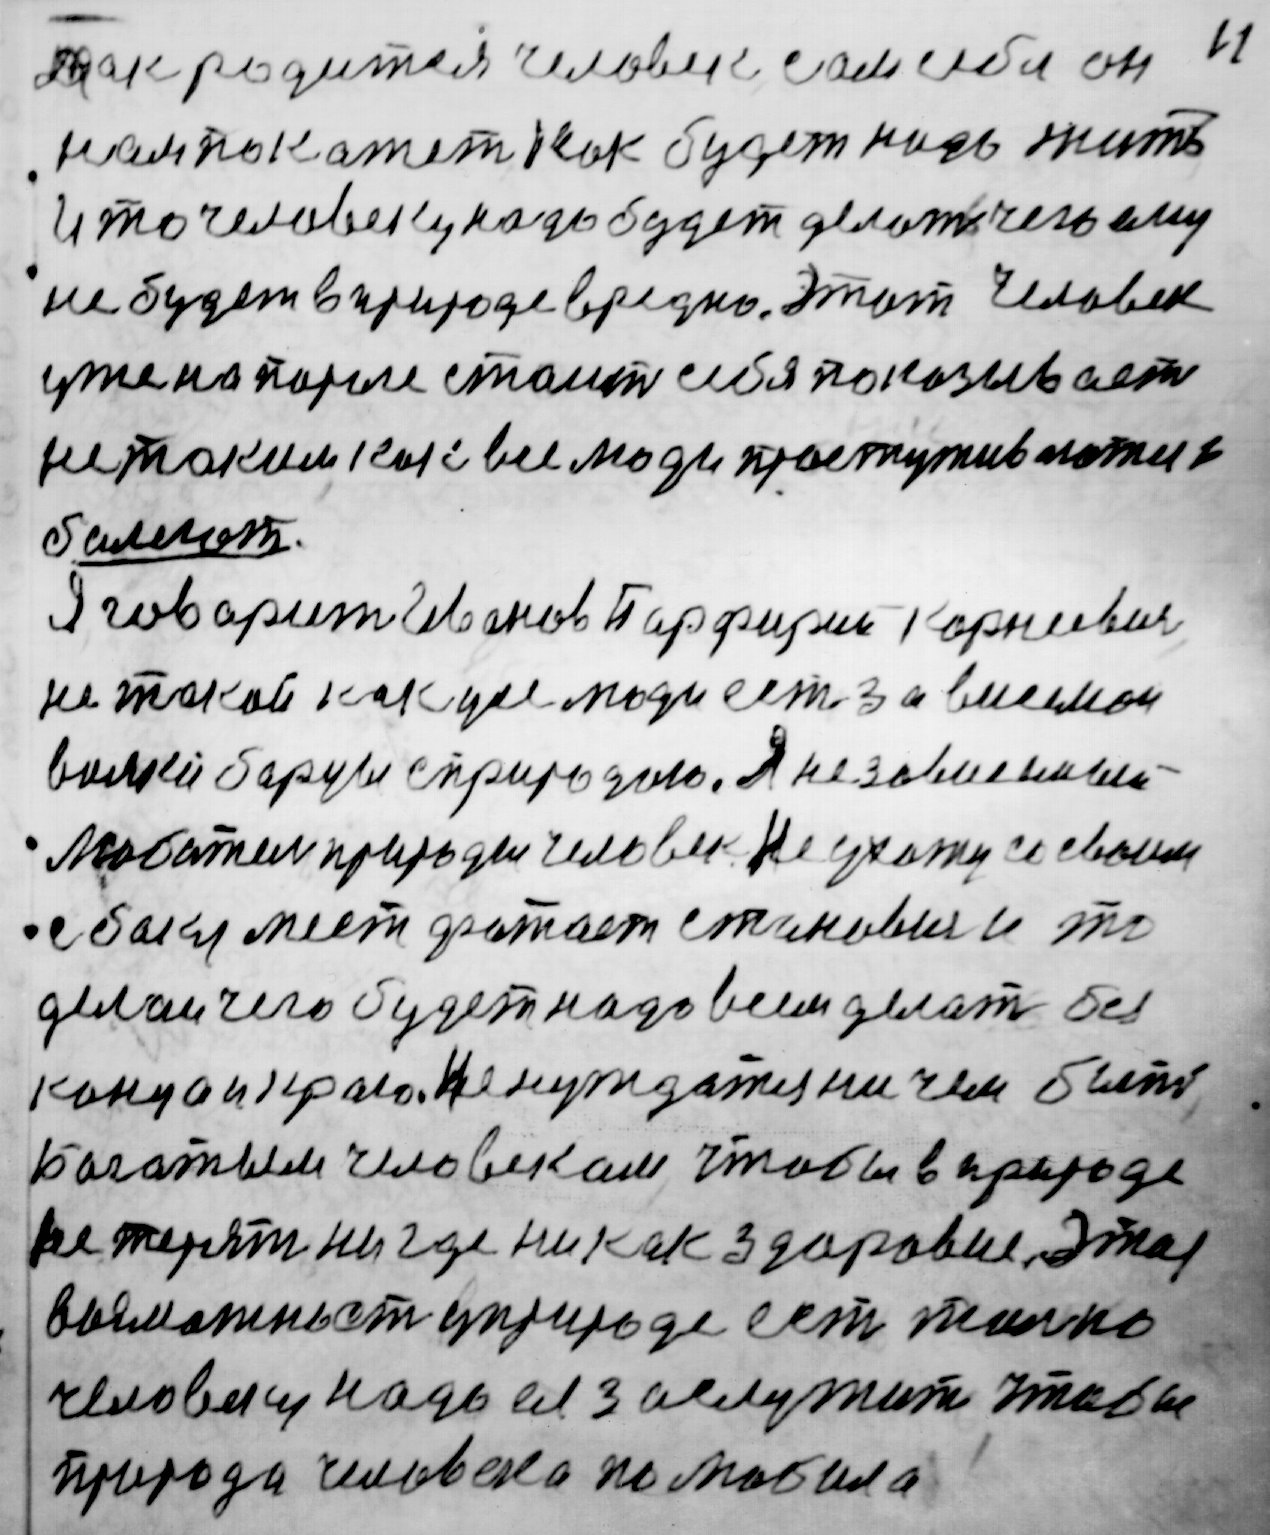 11
так родится человек, сам себя он
нам покажет как будет надо жить
и то человеку надо будет делать чего ему
не будет в природе вредно. Этот человек
уже на пороге стоит себя показывает
не таким как все люди простуживаются и
балеют.
Я говорит Иванов Парфирий Корнеевич
не такой как усе люди ест зависемои
борцы с природою. Я независемый
любател природы человек. Не ухожу со своим
с баку мест фатает становися и то
делаи чего будет надо всем делат без
конца и краю. Не нуждатся ни чем быть
богатым человекам чтобы в природе
не терят ни где ни как здоровие. Этая
возможност у природе ест толко
человеку надо её заслужит чтобы
природа человека полюбила